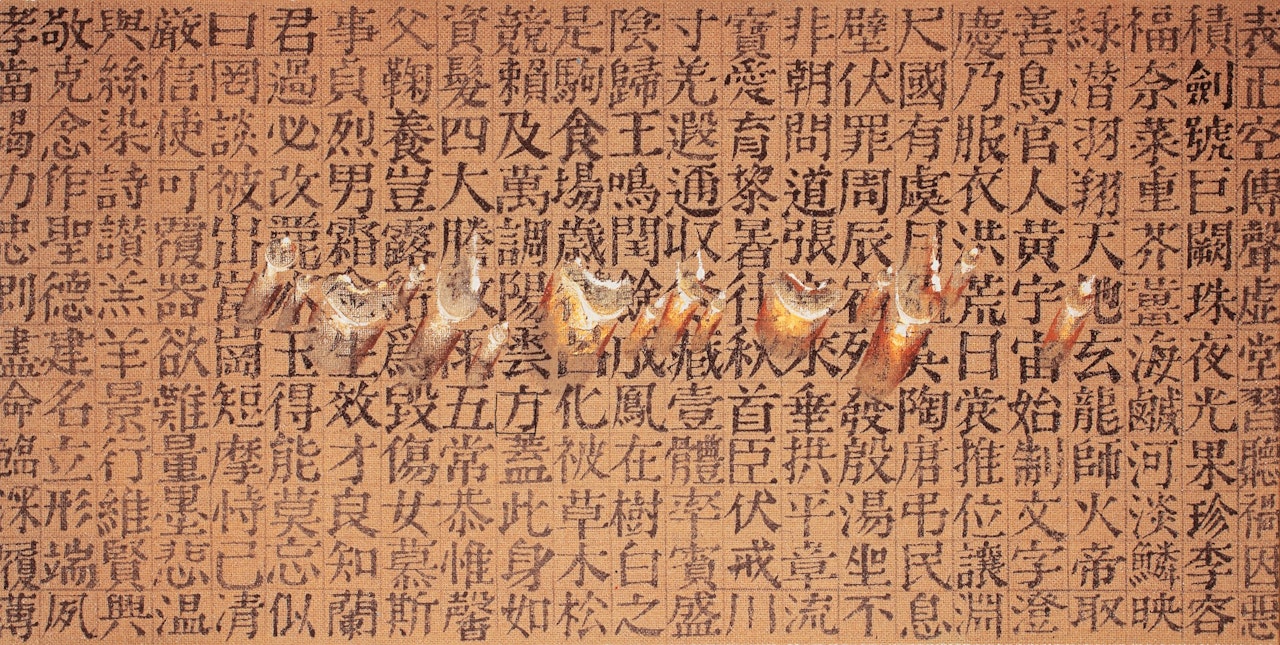 表正空傳聲虛堂習聽禍因惡
積劍號巨闕珠夜光果珍李容
福奈菜重芥薑海鹹河淡鱗映
緑潜羽翔天地玄龍師火帝取
善鳥官人黃宇宙始制文字澄
慶乃服衣洪荒日裳推位讓淵
尺國有虞月盈昃陶唐弔民息
璧伏罪周辰宿列發殷湯坐不
非朝問道張來垂拱平章流
寶愛育黎暑往秋首臣伏戎川
寸羌遐邇収冬藏壹體率賓盛
陰歸王鳴閏餘成鳳在樹白之
是駒食場歳呂化被草木松
競賴及萬調陽雲方蓋此身如
資髮四大騰致雨五常恭惟馨
父鞠養豈露結爲毀傷女慕斯
事貞烈男霜金生效才良知蘭
君過必改麗水玉得能莫忘似
曰罔談彼出崑岡短靡恃己清
厳信使可覆器欲難量墨悲温
與絲染詩讃羔羊景行維賢興
敬克念作聖德建名立形端夙
孝當竭力忠則盡命臨深履薄